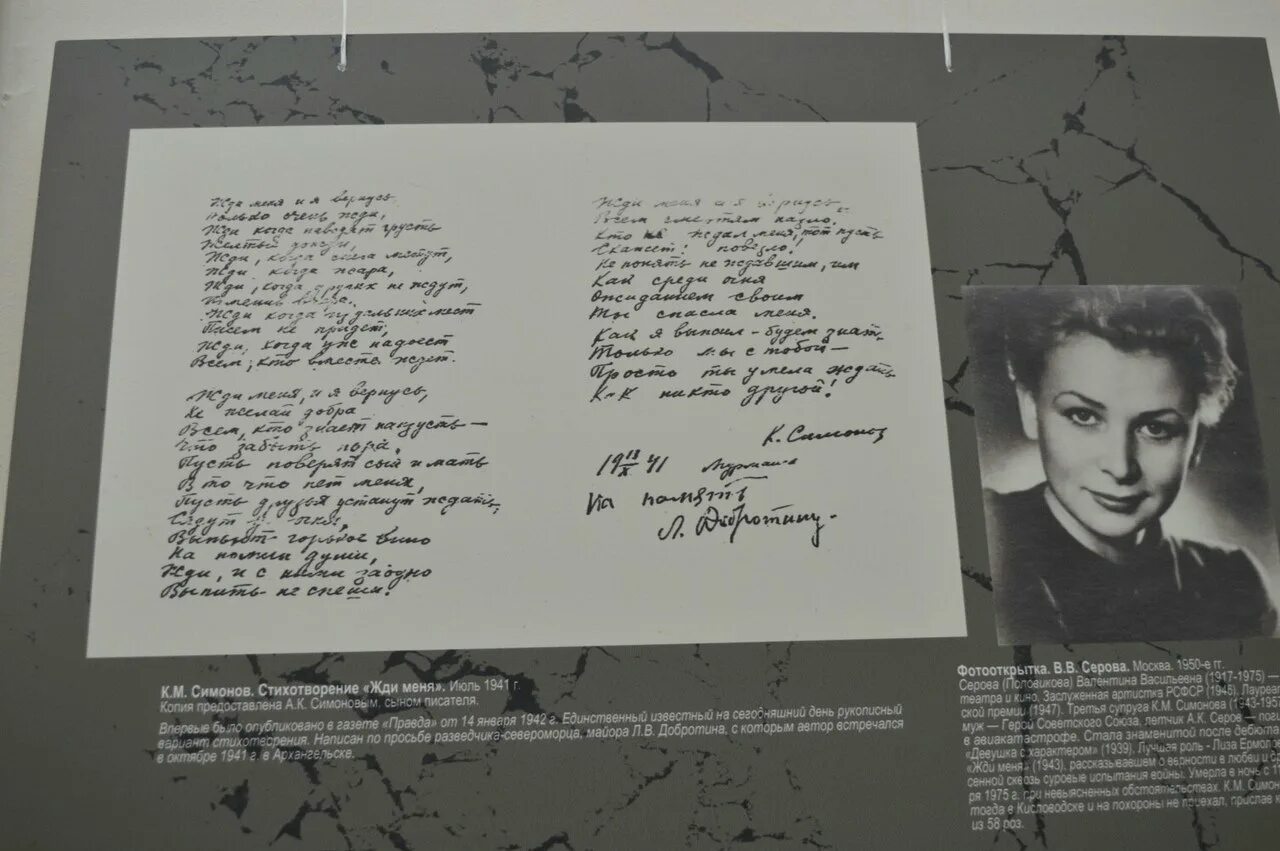 Жди меня и я вернусь
Только очень жди,
Жди когда наводят грусть
Желтые дожди,
Жди, когда снега метут,
Жди когда жара,
Жди, когда других не ждут,
Жди когда из дальних мест
Писем не придет,
Жди, когда уже надоест
Всем, кто вместе ждет.
Жди меня, и я вернусь,
Не желай добра
Всем, кто знает наизусть —
Что забыть пора.
Пусть поверят сын и мать
В то что нет меня,
Пусть друзья устанут ждать,
Сядут у огня,
Выпьют горькое вино
На помин души,
Жди, и с ними заодно
Выпить не спеши!
Жди меня и я вернусь
Всем смертям назло.
Кто не ждал меня, тот пусть
Скажет: повезло!
Не понять не ждавшим, им
Как среди огня
Ожиданием своим
Ты спасла меня.
Как я выжил – будем знать
Только мы с тобой –
Просто ты умела ждать
Как никто другой!
К. Симонов
41
На память
Л. Добротину.
К.М. Симонов. Стихотворение «Жди меня». Июль 1941 г.
Копия предоставлена А.К. Симоновым, сыном писателя.
Впервые было опубликовано в газете «Правда» от 14 января 1942 г. Единственный известный на сегодняшний день рукописный
вариант стихотворения. Написан по просьбе разведчика-североморца, майора Л.В. Добротина, с которым автор встречался
в октябре 1941 г. в Архангельске.
Фотооткрытка. В.В. Серова. Москва. 1950-е гг.
Серова (Половикова) Валентина Васильевна (1917-1975) —
театра и кино. Заслуженная артистка РСФСР (1946). Лауреат
ской премии (1947). Третья супруга К.М. Симонова (1943-195
муж — Герой Советского Союза, летчик А.К. Серов –
в авиакатастрофе. Стала знаменитой после дебюта
«Девушка с характером» (1939). Лучшая роль - Лиза
«Жди меня» (1943), рассказывавшем о верности в любви и
сенной сквозь суровые испытания войны. Умерла в ночь с
ря 1975 г. при невыясненных обстоятельствах. К.М.
тогда в Кисловодске и на похороны не приехал, прислав
из 58 роз.